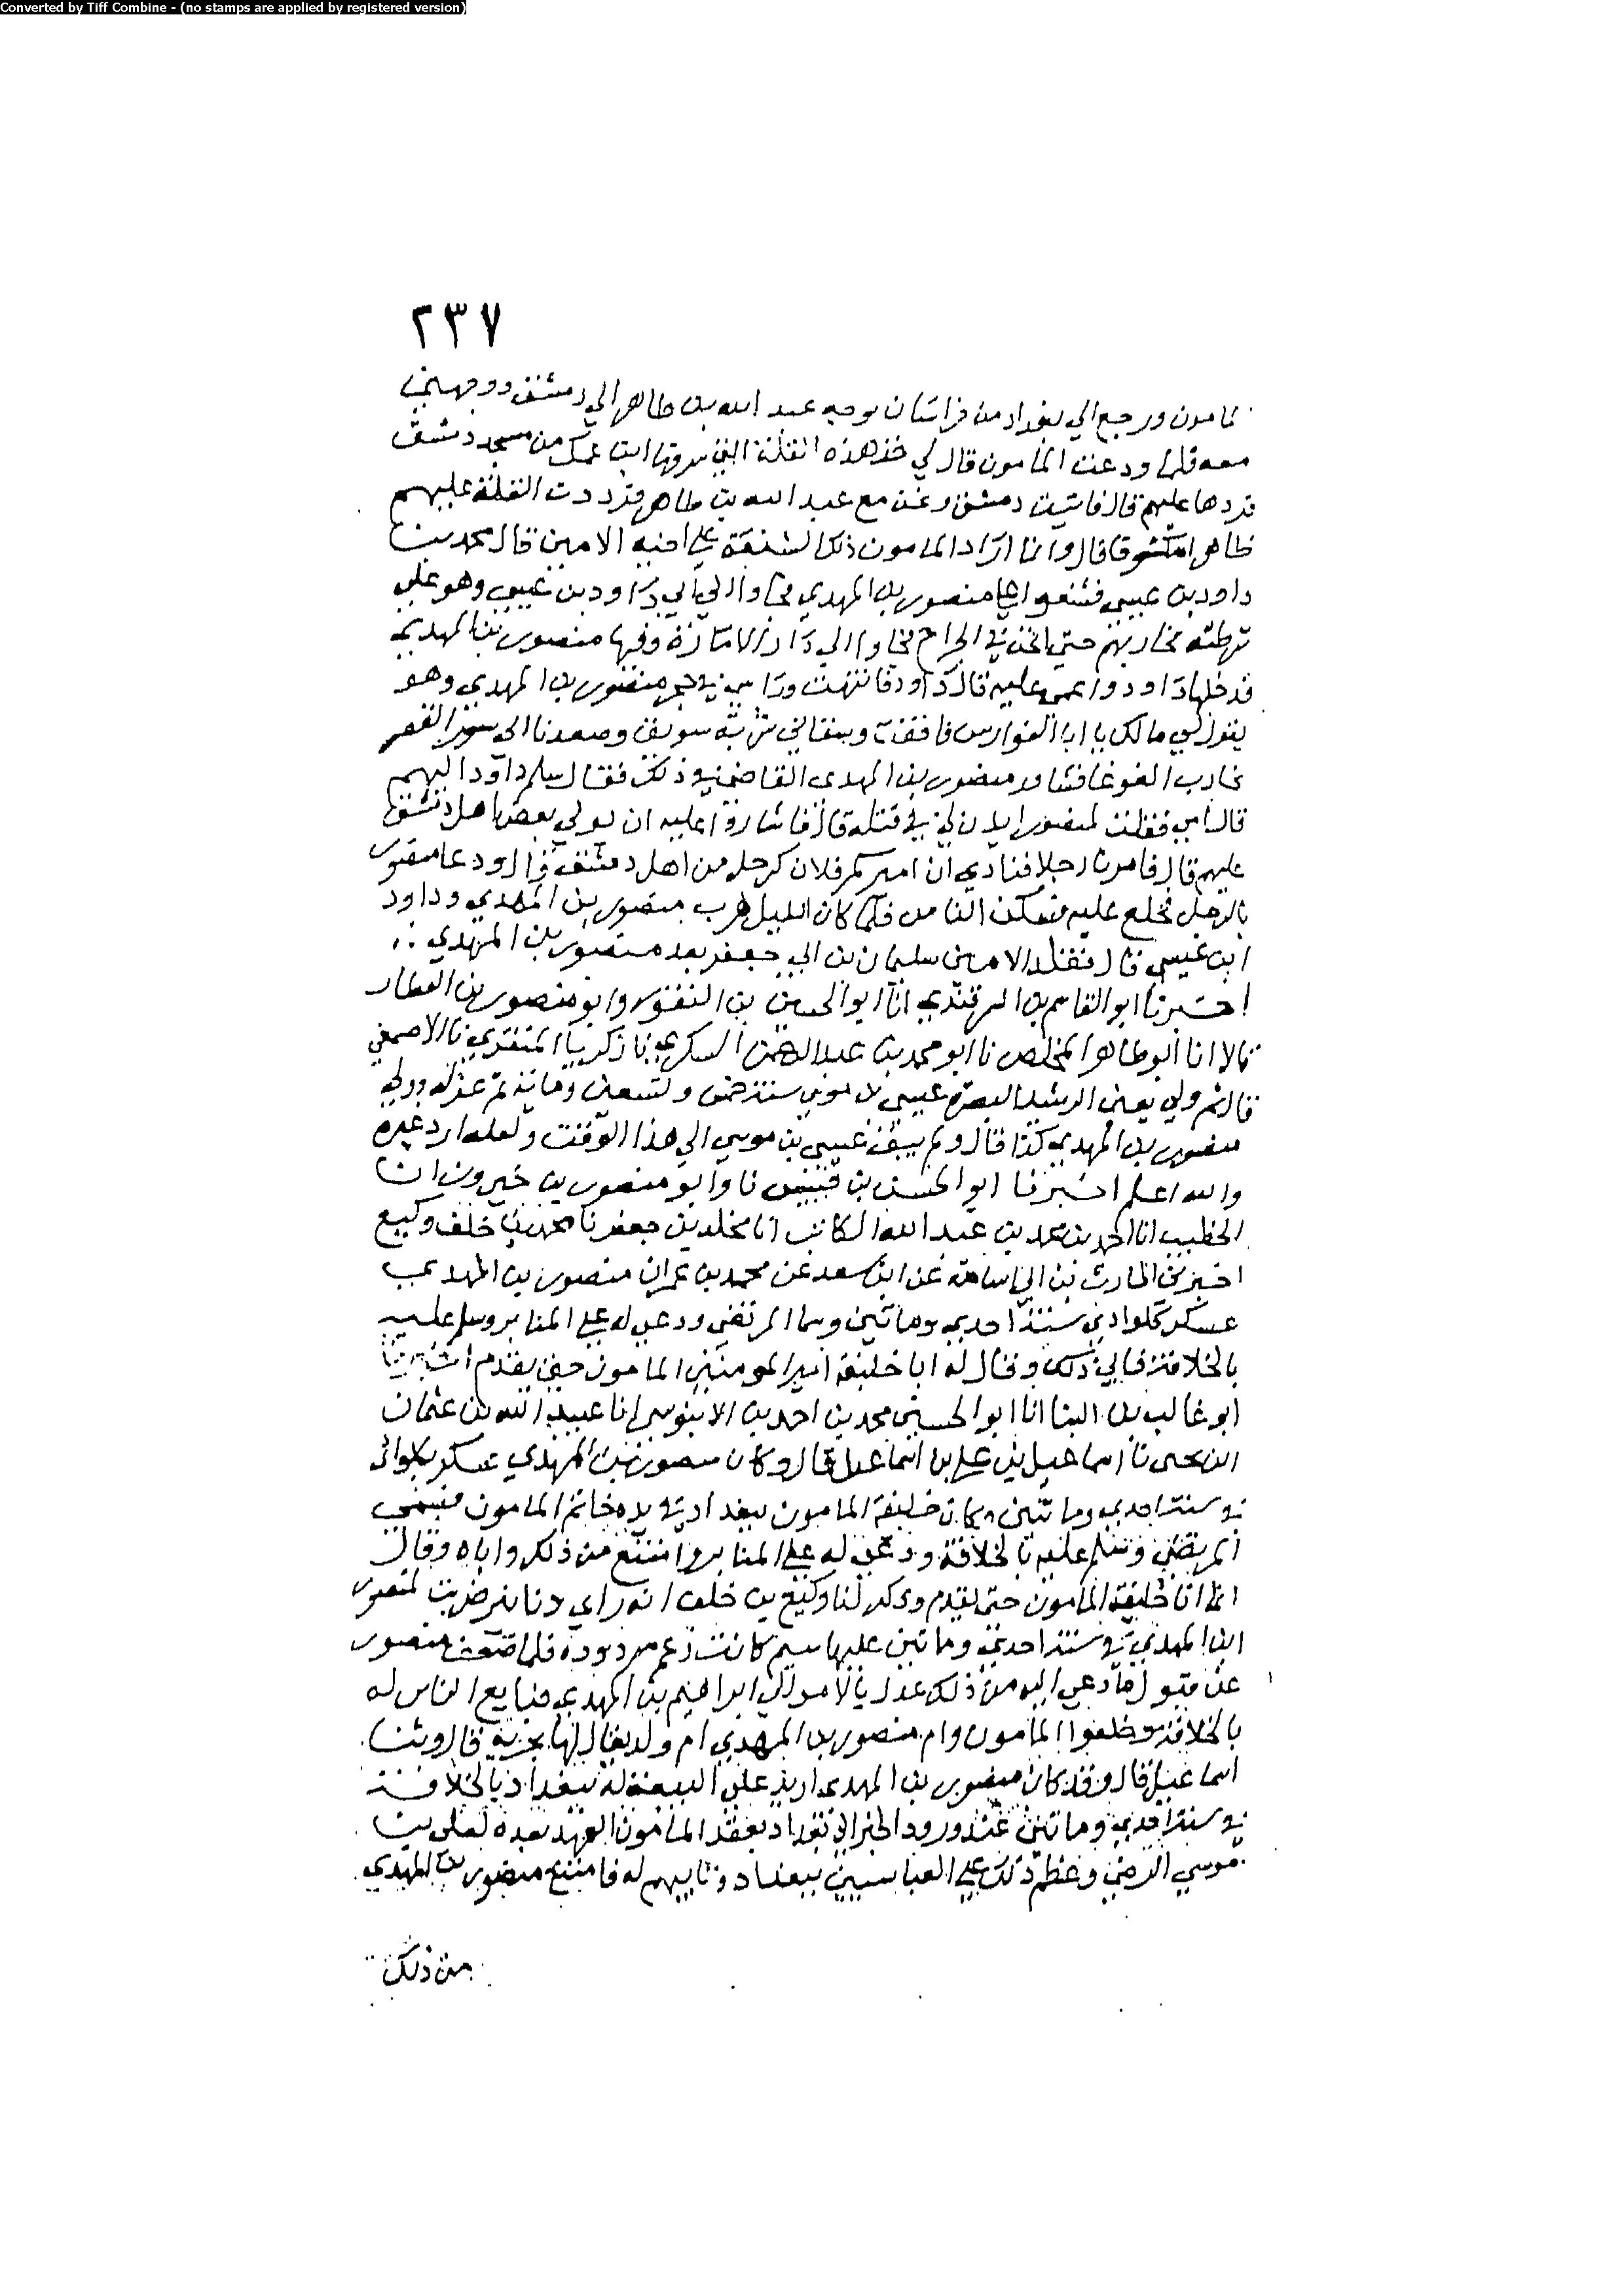 Converted by Tiff Combine - (no stamps are applied by registered version)
٢٣٧
المامون ورجع الي بغداد من خراسان يوجه عبد الله بن طاهر الي دمشق ووجهني
معه فلما ودعت المامون قال لي خذ هذه القلة التي سرقها ابن عمك من مسجد دمشق
فردها عليهم قال فاتيت دمشق ونحن مع عبد الله بن طاهر فرددت القلة عليهم
ظاهرا مكشوفا قال وانما اراد المامون ذلك لشنعة علي اخيه الامين قال محمد بن
داود بن عيسي فشغبوا علي منصور بن المهدي فجاوا الي ابي داود بن عيسي وهو علي
شرطته فحاربهم حتي اثخن في الجراح فجاوا الي دار الامارة وفيها منصور بن المهدي
فدخلها داود واغمي عليه قال داود فانتبهت وراسي في حجر منصور بن المهدي وهو
يقول لي مالك يا ابا الفوارس فافقت وسقاني شربة سويق وصعدنا الي سور القصر
نحارب الغوغا فشاور منصور بن المهدي القاضي في ذلك فقال سلم داود اليهم
قال ابي فقلت لمنصور ايذن لي في قتله قال فاشاروا عليه ان يولي بعض اهل دمشق
عليهم قال فامرنا رجلا فنادي ان اميركم فلان لرجل من اهل دمشق قال ودعا منصور
بالرجل فخلع عليه فسكن الناس فلما كان الليل هرب منصور بن المهدي وداود
ابن عيسي قال فقلد الامين سليمان بن ابي جعفر بعد منصور بن المهدي
اخبرنا ابو القاسم بن السمرقندي انا ابو الحسين بن النقور وابو منصور بن العطار
قالا انا ابو طاهر المخلص نا ابو محمد بن عبد الرحمن السكري نا زكريا المنقري نا الاصمعي
قال ثم ولي يعني الرشيد البصرة عيسي بن موسي سنة خمس وتسعين وماية ثم عزله وولي
منصور بن المهدي كذا قال ولم يبق عيسي بن موسي الي هذا الوقت ولعله اراد غيره
والله اعلم اخبرنا ابو الحسن بن قبيس نا وابو منصور بن خيرون انا
الخطيب انا احمد بن محمد بن عبد الله الكاتب انا مخلد بن جعفر نا محمد بن خلف وكيع
اخبرني الحارث بن ابي اسامة عن ابن سعد عن محمد بن عمران منصور بن المهدي
عسكر بكلواذي سنة احدي وماتين وسما المرتضي ودعي له علي المنابر وسلم عليه
بالخلافة فابي ذلك وقال انا خليفة امير المومنين المامون حتي يقدم اخبرنا
ابو غالب بن البنا انا ابو الحسين محمد بن احمد بن الابنوسي انا عبيد الله بن عثمان
ابن يحيي نا اسماعيل بن علي بن اسماعيل قال وكان منصور بن المهدي عسكر بكلواذي
في سنة احدي وماتين وكان خليفة المامون ببغداد في يده خاتم المامون فسمي
المرتضي وسلم عليه بالخلافة ودعي له علي المنابر وامتنع من ذلك واباه وقال
انما انا خليفة المامون حتي يقدم وذكر لنا وكيع بن خلف انه راي دنانير ضربت لمنصور
ابن المهدي في سنة احدي وماتين عليها سيم كانت زعم مردودة فلما ضعف منصور
عن قبول ما دعي اليه من ذلك عدل بالامر الي ابراهيم بن المهدي فبايع الناس له
بالخلافة وخلعوا المامون وام منصور بن المهدي ام ولد يقال لها بحرية قال وثنا
اسماعيل قال وقد كان منصور بن المهدي اريد علي البيعة له ببغداد بالخلافة
في سنة احدي وماتين عند ورود الخبر الي بغداد بعقد المامون العهد بعده لعلي بن
موسي الرضي وعظم ذلك علي العباسيين ببغداد وتابيهم له فامتنع منصور بن المهدي
من ذلك